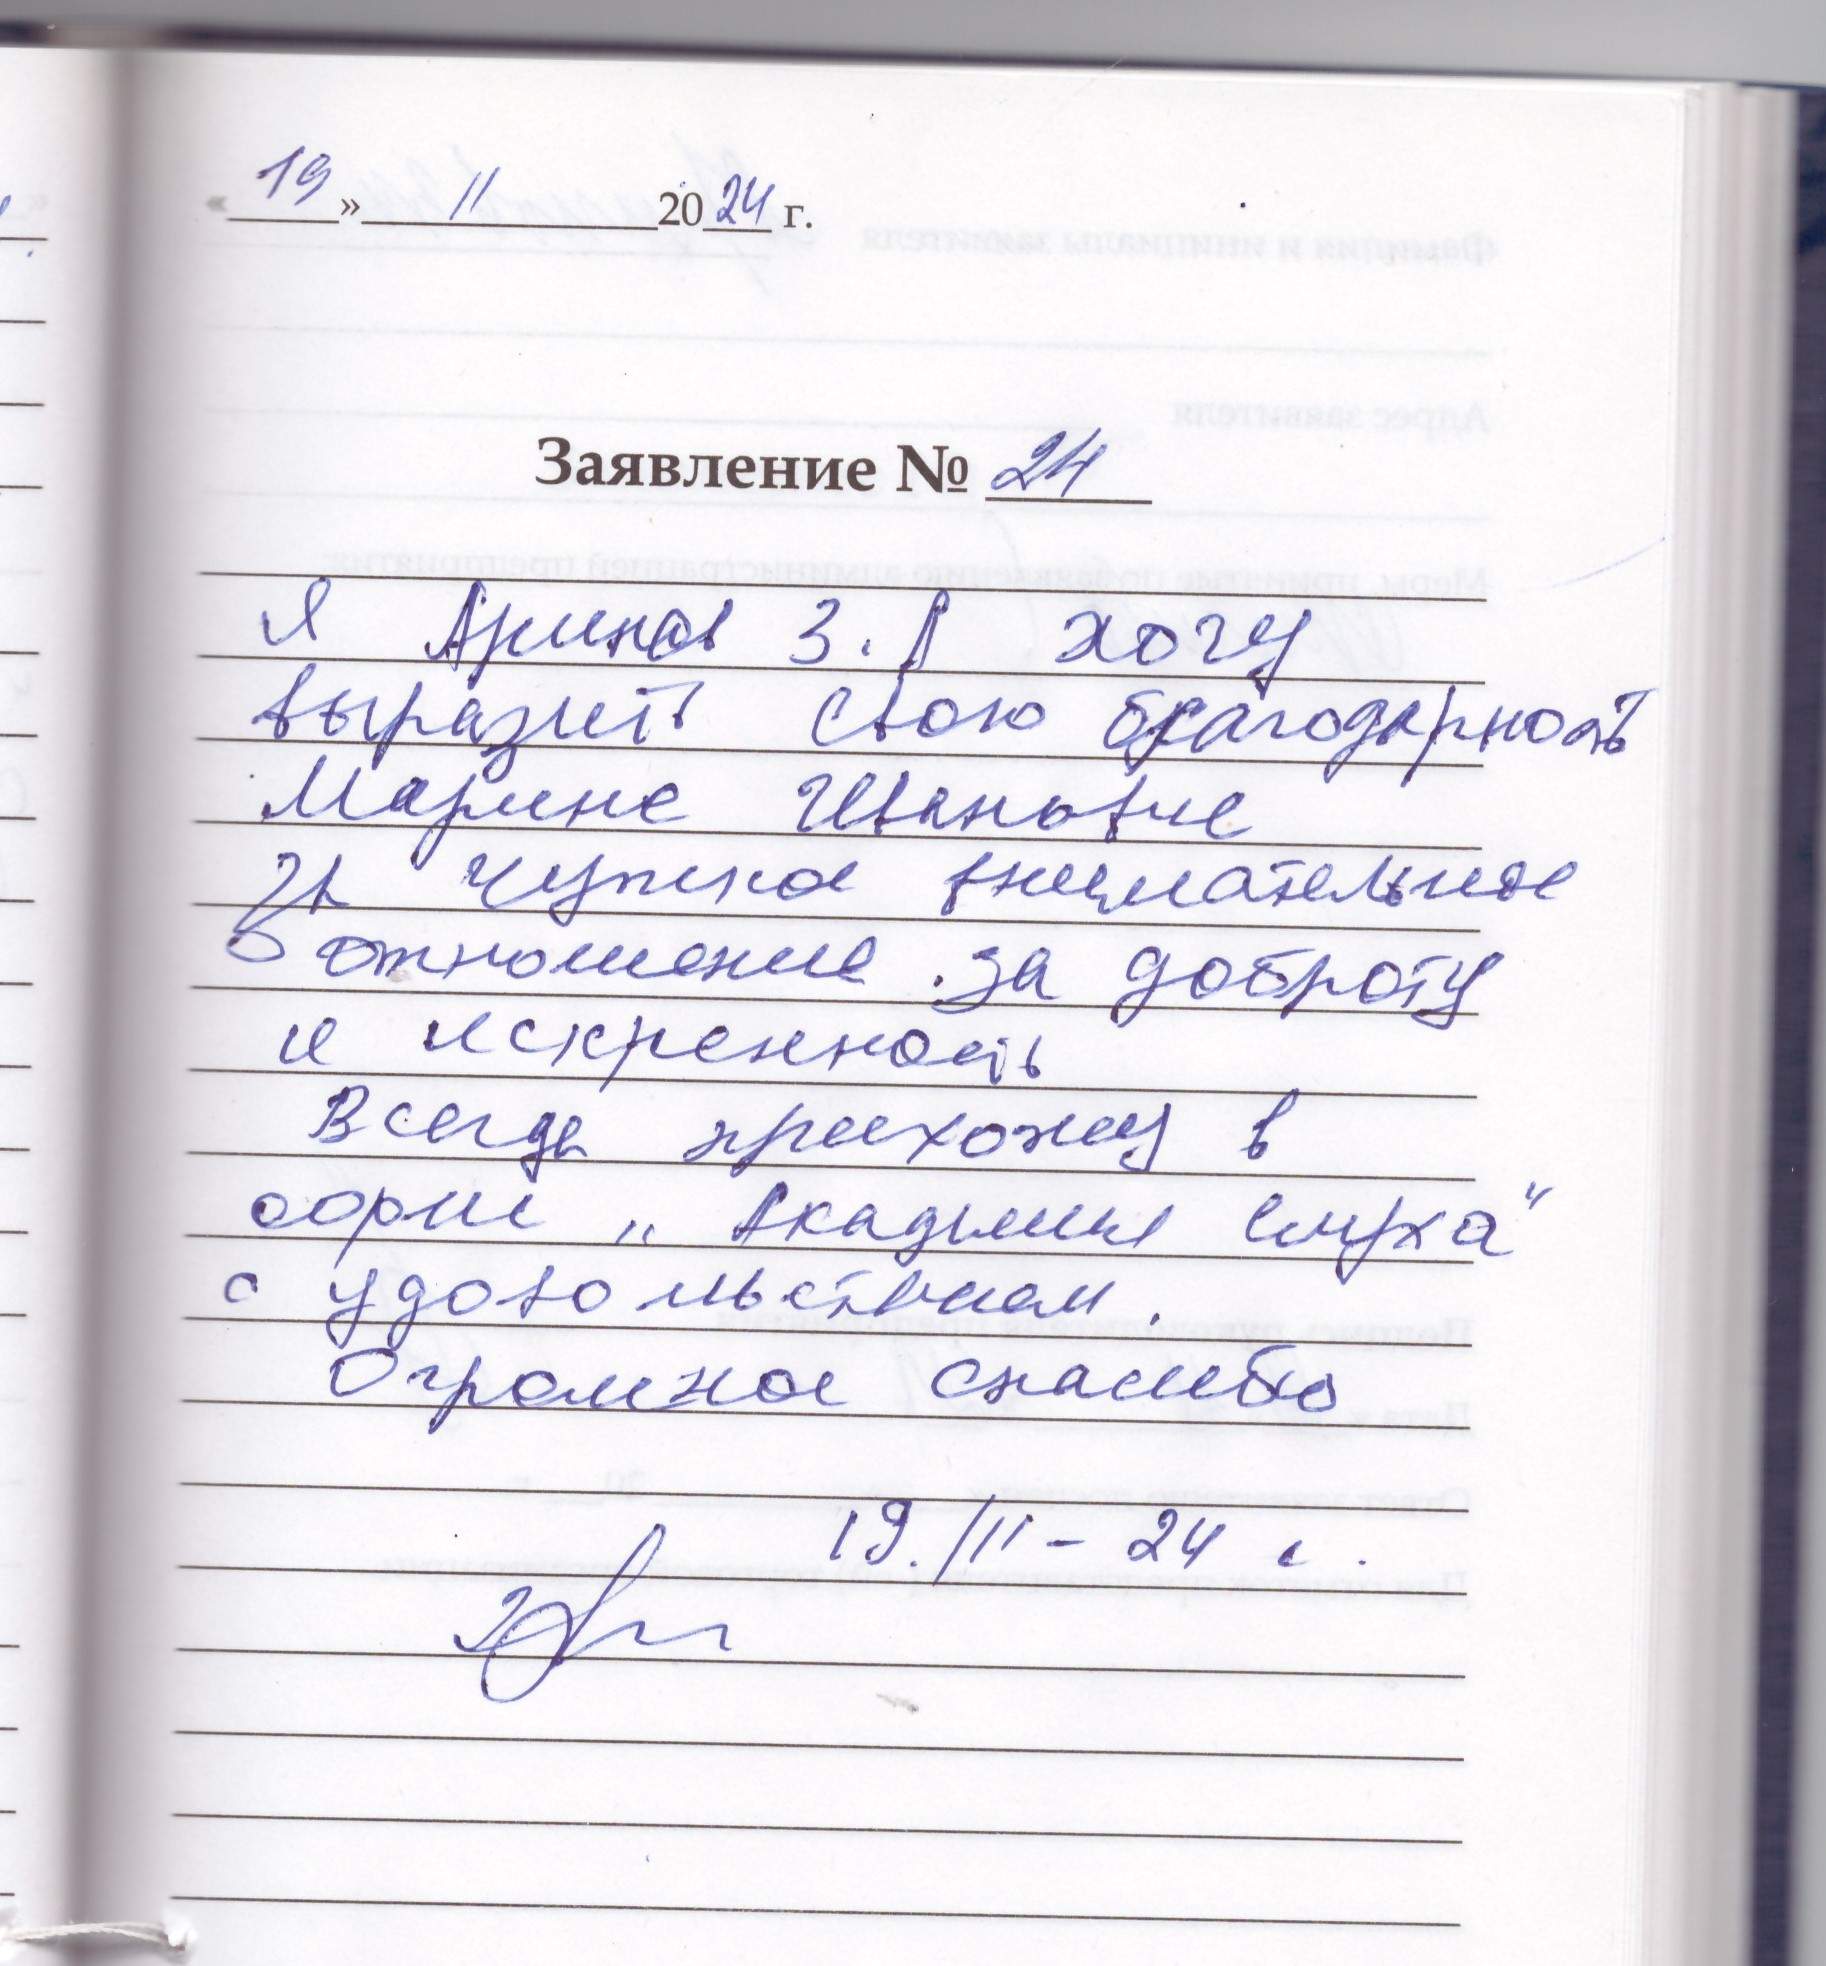 « 19 » 11 2024 г.
Заявление № 24
Я Арина З. А хочу
выразить свою благодарность
Марине Ивановне
за чуткое внимательное
отношение. за доброту
и искренность
Всегда прихожу в
"Академия слуха"
с удовольствием.
Огромное спасибо
19./11 - 24 г.